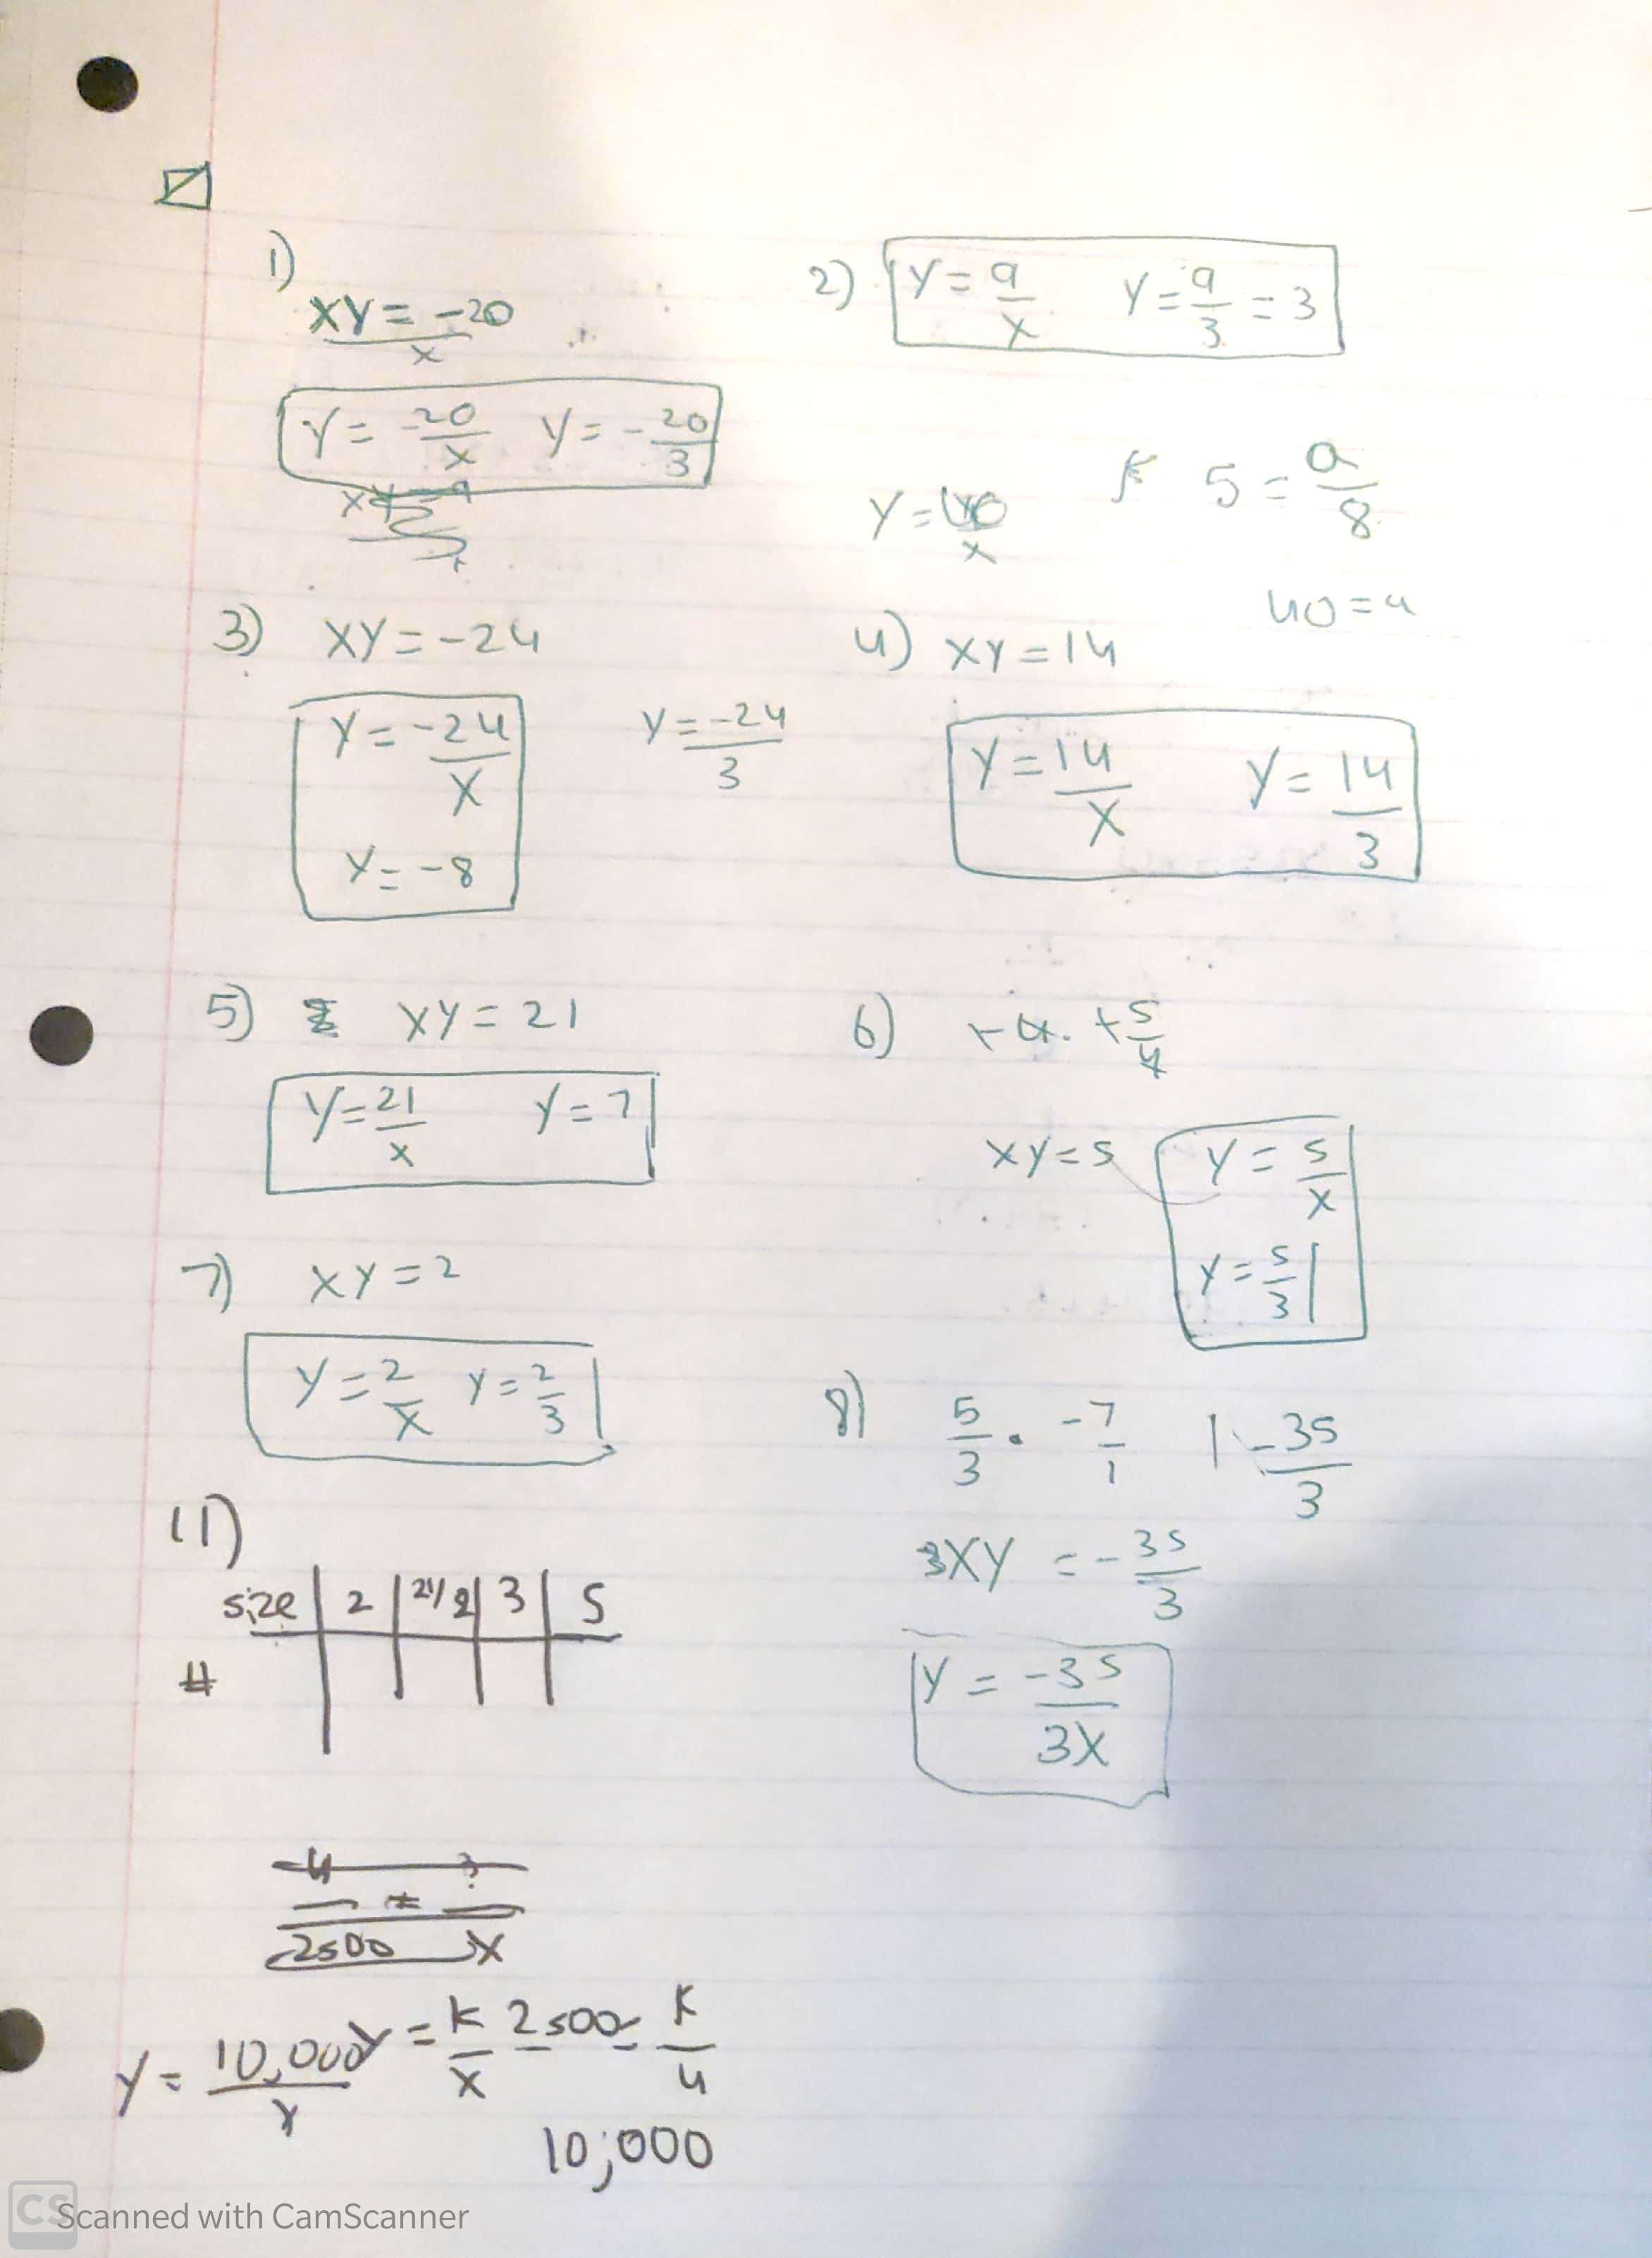 1)
XY = -20
x
Y = -20/x Y = -20/3
2) Y = 9/x Y = 9/3 = 3
Y = 40/x 5 = a/8
40 = a
3) XY = -24
Y = -24/X Y = -24/3
Y = -8
4) XY = 14
Y = 14/X Y = 14/3
5) XY = 21
Y = 21/x Y = 7
6)
XY = 5 Y = 5/X
Y = 5/3
7) XY = 2
Y = 2/x Y = 2/3
8) 5/3 · -7/1 -35/3
XY = -35/3
Y = -35/3X
11)
size 2 2 1/2 3 5
#
4/2500 = ?/X
Y = K/X 2500 = K/4
Y = 10,000/X
10,000
CS Scanned with CamScanner